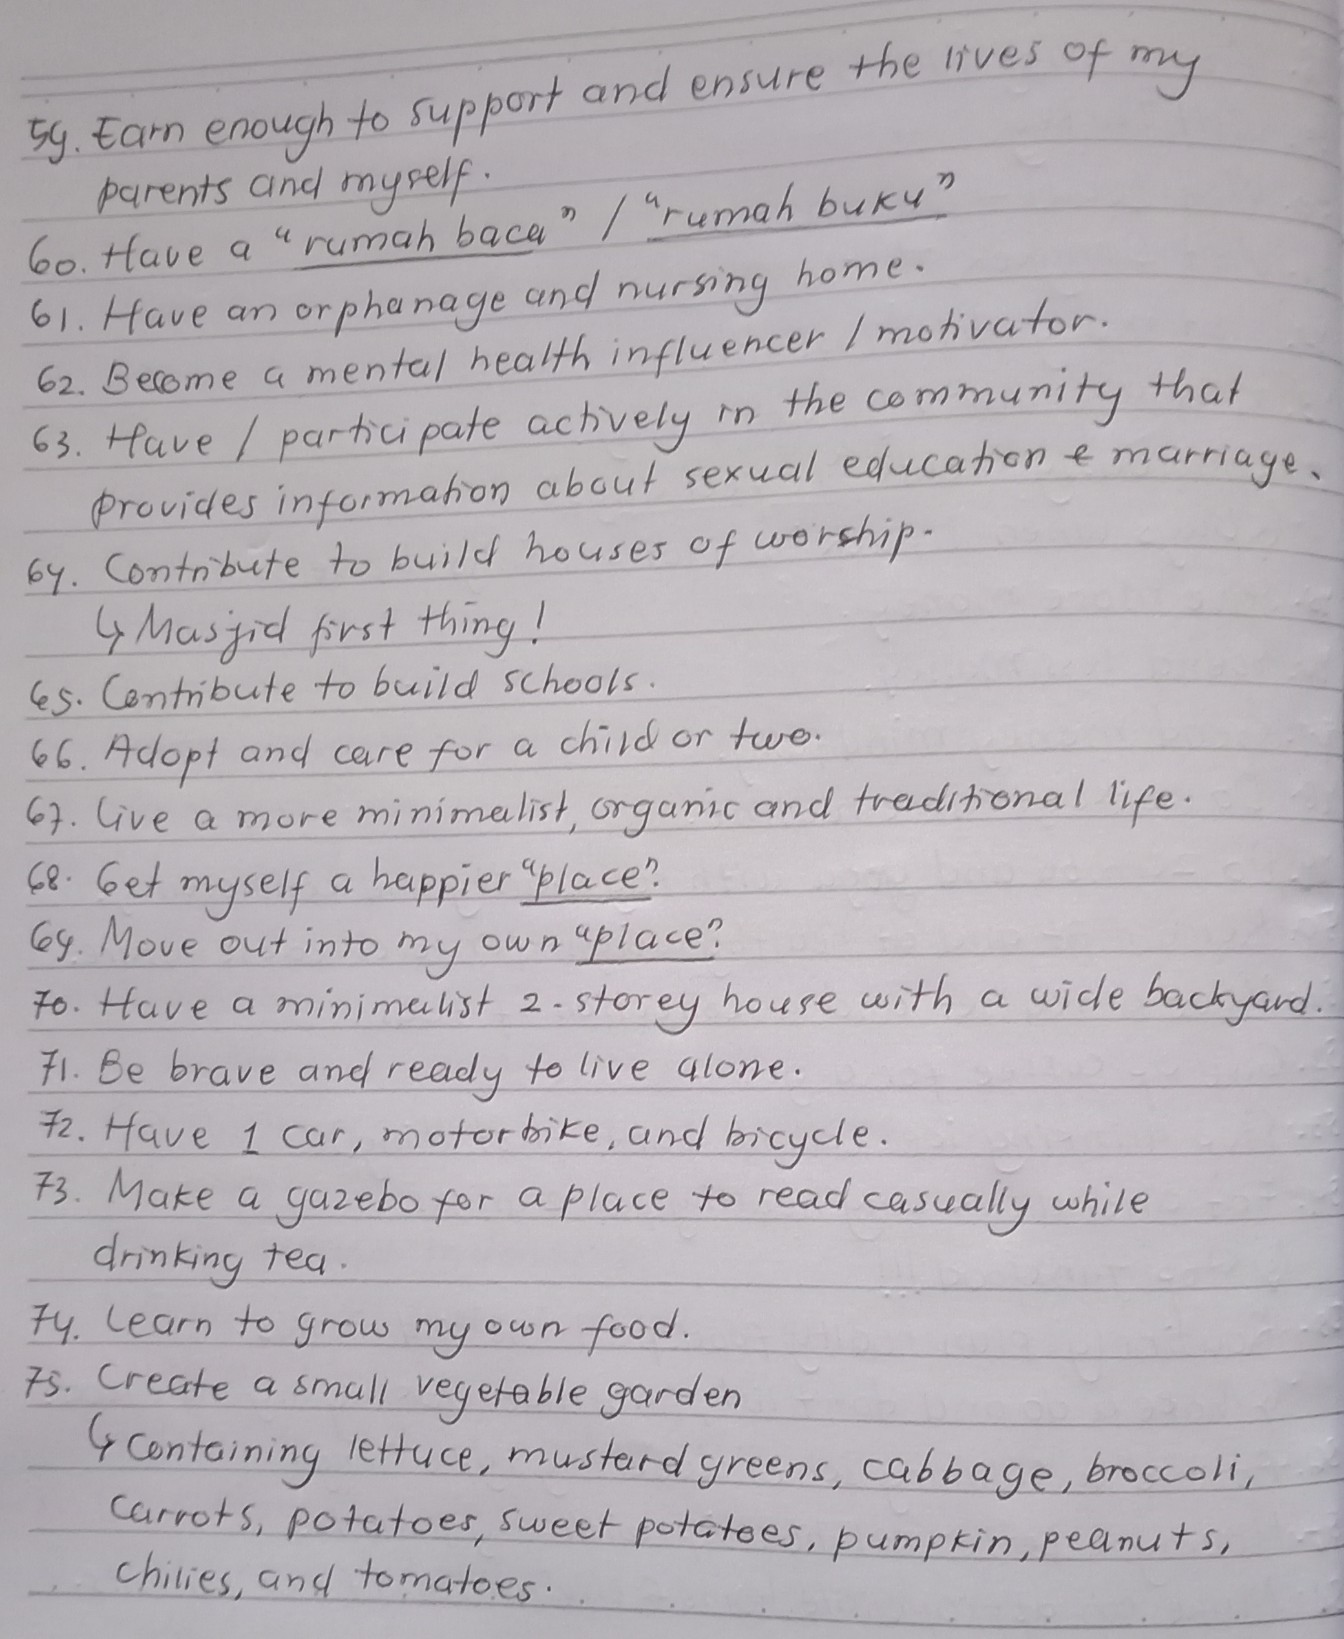 59. Earn enough to support and ensure the lives of my
parents and myself.
60. Have a "rumah baca" / "rumah buku"
61. Have an orphanage and nursing home.
62. Become a mental health influencer / motivator.
63. Have / participate actively in the community that
provides information about sexual education & marriage.
64. Contribute to build houses of worship.
↳ Masjid first thing!
65. Contribute to build schools.
66. Adopt and care for a child or two.
67. Live a more minimalist, organic and traditional life.
68. Get myself a happier "place".
69. Move out into my own "place".
70. Have a minimalist 2-storey house with a wide backyard.
71. Be brave and ready to live alone.
72. Have 1 car, motorbike, and bicycle.
73. Make a gazebo for a place to read casually while
drinking tea.
74. Learn to grow my own food.
75. Create a small vegetable garden
↳ Containing lettuce, mustard greens, cabbage, broccoli,
carrots, potatoes, sweet potatoes, pumpkin, peanuts,
chilies, and tomatoes.